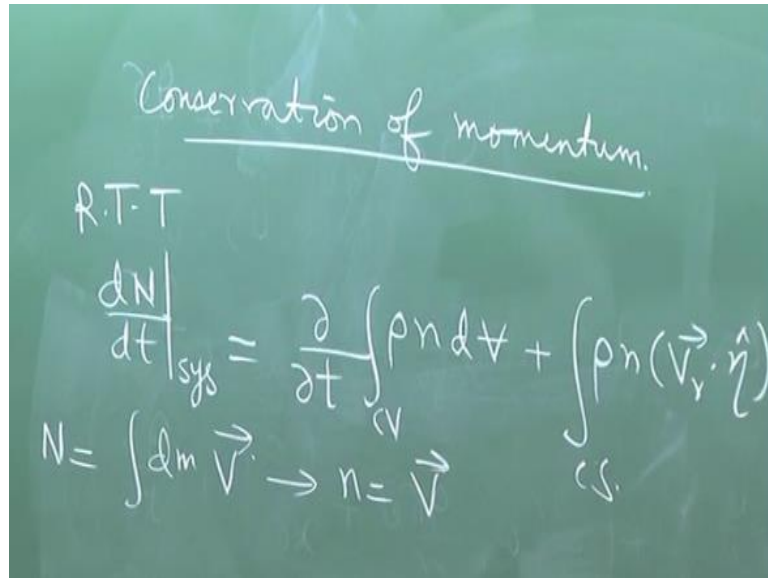 Conservation of momentum.
R.T.T
dN/dt|sys = ∂/∂t ∫CV ρn d∀ + ∫C.S. ρn(V⃗r·η̂)
N = ∫dm V⃗ → n = V⃗